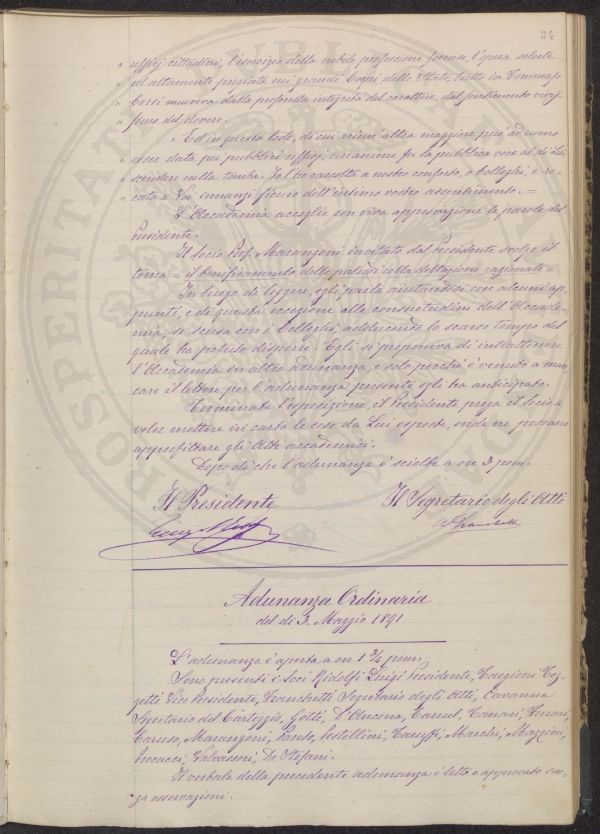 34
" uffizj cittadini, l'esercizio della nobile professione forense, l'opera solerte
" ed altamente pregiata nei grandi Corpi dello Stato, tutto in Tommaso
" Corsi muoveva dalla profonda integrità del carattere, dal sentimento vivis-
" simo del dovere.
" Ed in questa lode, di cui niun altra maggiore può ad uomo
" esser data pei pubblici uffizj, unanime fu la pubblica voce al dì Lui
" scendere nella tomba. Io l'ho raccolta a nostro conforto, o Colleghi, e re-
" cata a Voi innanzi sicuro dell'intimo vostro assentimento. =
L'Accademia accoglie con viva approvazione le parole del
Presidente.
Il Socio Prof. Marangoni invitato dal Presidente svolge il
tema = il bonificamento delle paludi colla dottazione razionale =
In luogo di leggere, egli parla aiutandosi con alcuni ap-
punti, e di questa eccezione alle consuetudini dell'Accade-
mia, si scusa con i Colleghi, adducendo lo scarso tempo del
quale ha potuto disporre. Egli si proponeva di intrattenere
l'Accademia in altra adunanza, e solo perchè è venuto a man-
care il lettore per l'adunanza presente egli ha anticipato.
Terminata l'esposizione, il Presidente prega il Socio a
voler mettere in carta le cose da Lui esposte, onde ne possano
approfittare gli Atti accademici.
Dopo di che l'adunanza è sciolta a ore 3 pom.
Il Presidente
Il Segretario degli Atti
Adunanza Ordinaria
del dì 3. Maggio 1891
L'adunanza è aperta a ore 1 3/4 pom.
Sono presenti i Soci Ridolfi Luigi Presidente, Targioni Toz-
zetti Vice Presidente, Franchetti Segretario degli Atti, Cavanna
Segretario del Carteggio, Gotti, D'Ancona, Carnel, Tanari, Ferrari,
Caruso, Marangoni, Paolo, Pestellini, Taruffi, Marchi, Mazzini,
Valvassori, De Stefani.
Il verbale della precedente adunanza è letto e approvato sen-
za osservazioni.